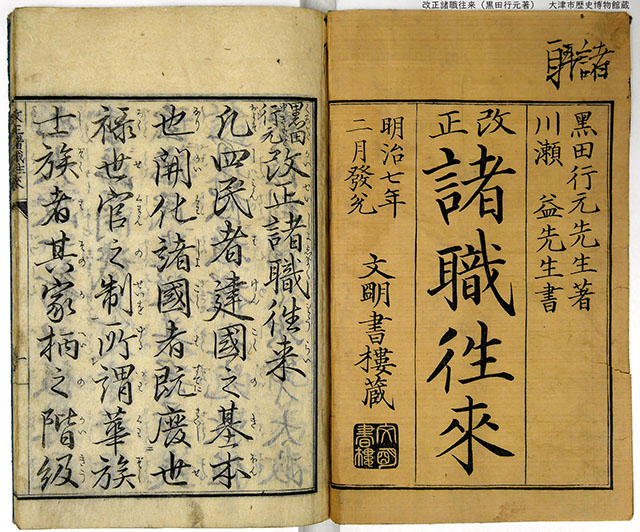 改正諸職往来（黒田行元著）　大津市歴史博物館蔵
諸職
黒田行元先生著
川瀬　益先生書
改正
諸職徃來
明治七年
二月發兌
文明書樓蔵
文明
書樓
黒田
行元
改正諸職徃来
凡四民者建國之基本
也開化諸國者既廢世
禄世官之制所謂華族
士族者其家柄之階級
改正諸職往来